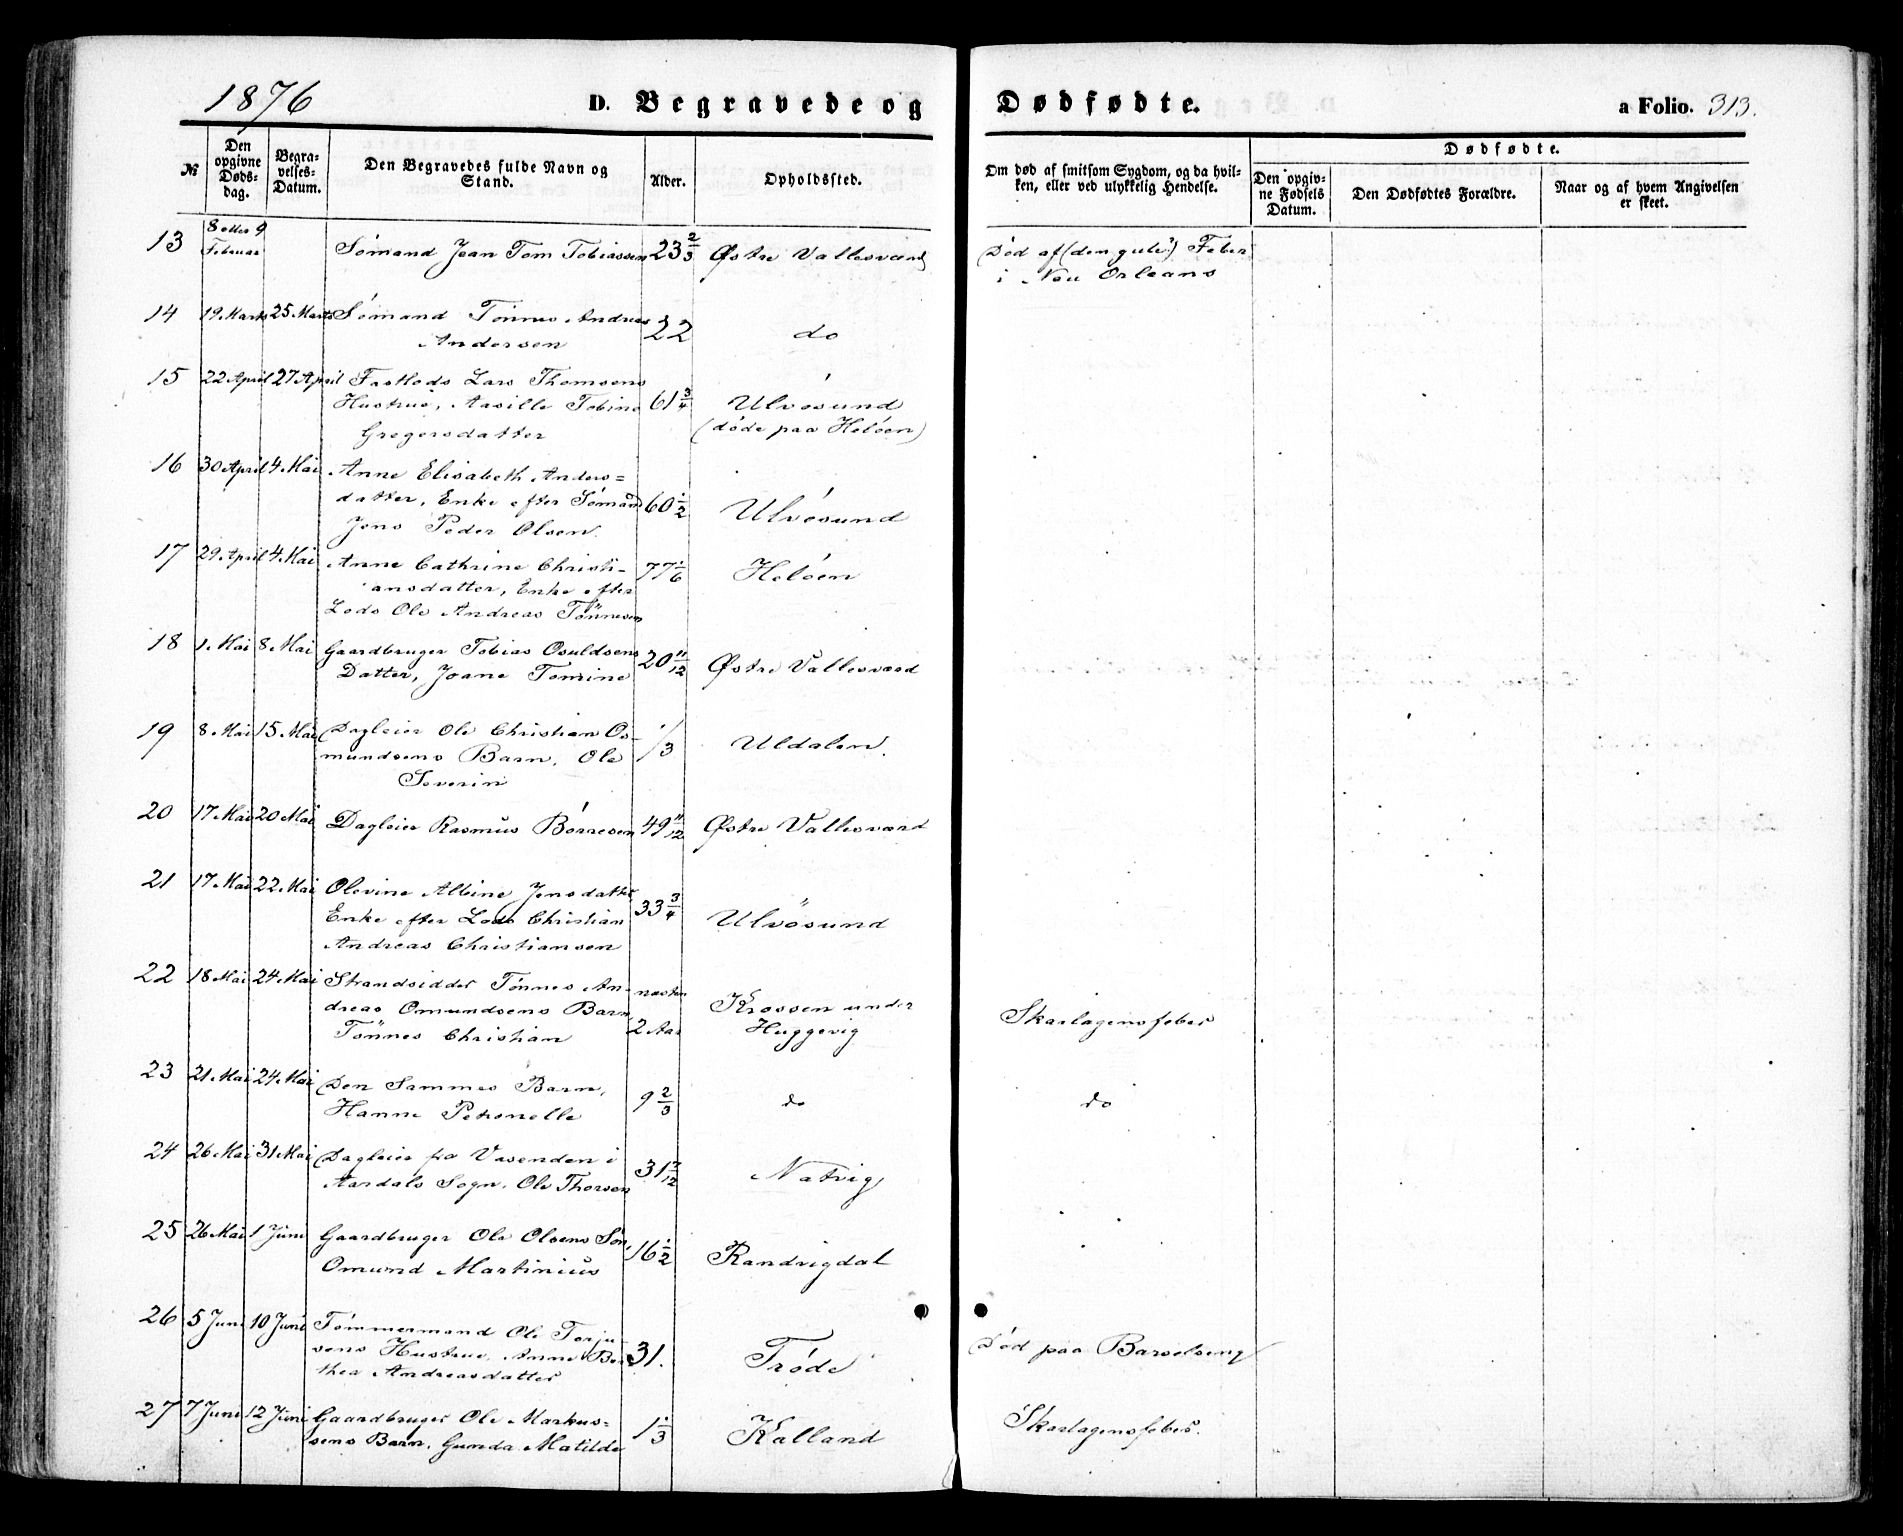 1876
D. Begravede og Dødfødte.
a Folio. 313.
№
Den opgivne Døds-dag.
Begra-velses-Datum.
Den Begravedes fulde Navn og Stand.
Alder.
Opholdssted.
Om død af smitsom Sygdom, og da hvil-ken, eller ved ulykkelig Hendelse.
Dødfødte.
Den opgiv-ne Fødsels Datum.
Den Dødfødtes Forældre.
Naar og af hvem Angivelsen er skeet.
13 8 eller 9 Februar Sømand Jean Tom Tobiassen 23 2/3 Østre Vallesværd Død af (den gule?) Feber
i New Orleans
14 19 Marts 25 Marts Sømand Tønnes Andreas 22 do
Andersen
15 22 April 27 April Fastlods Lars Thomsens 61 3/4 Ulvøsund
Hustrue, Aasille Tobine (døde paa Heløen)
Gregersdatter
16 30 April 4 Mai Anne Elisabeth Anders= 60 1/2 Ulvøsund
datter, Enke efter Sømand
Jens Peder Olsen.
17 29 April 4 Mai Anne Cathrine Christi- 77 1/6 Heløen
ansdatter, Enke efter
Lods Ole Andreas Tönnesen
18 1 Mai 8 Mai Gaardbruger Tobias Osuldsens 20 11/12 Østre Vallesværd
Datter, Joane Tomine
19 8 Mai 15 Mai Dagleier Ole Christian Os- 1/3 Uldalen.
mundsens Barn, Ole
Severin
20 17 Mai 20 Mai Dagleier Rasmus Børresen 49 11/12 Østre Vallesværd
21 17 Mai 22 Mai Olevine Albine Jensdatter 33 3/4 Ulvösund
Enke efter Lods Christian
Andreas Christiansen
22 18 Mai 24 Mai Strandsidder Tønnes An- næsten 2 Aar Krossen under
dreas Omundsens Barn Huggevig Skarlagensfeber
Tönnes Christian
23 21 Mai 24 Mai Den Sammes Barn, 9 2/3 do do
Hanne Petronelle
24 26 Mai 31 Mai Dagleier fra Vasenden i 31 7/12 Natvig
Aardals Sogn, Ole Thorsen
25 26 Mai 1 Juni Gaardbruger Ole Olsens Søn, 16 1/2 Randvigdal
Omund Martinius
26 5 Juni 10 Juni Tømmermand Ole Terju- 31. Trøde Død paa Barselseng
sens Hustrue, Anne Ber-
thea Andreasdatter
27 7 Juni 12 Juni Gaardbruger Ole Markus= 1 1/3 Kalland Skarlagensfeber.
sens Barn, Gunda Matilde